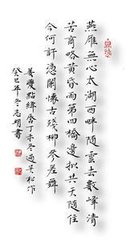 燕雁無心太湖西畔隨雲去數峰清
苦商略黃昏雨第四橋邊擬共天隨住
今何許憑闌懷古殘柳參差舞
姜夔點絳唇丁未冬過吳松作
癸巳年冬志明